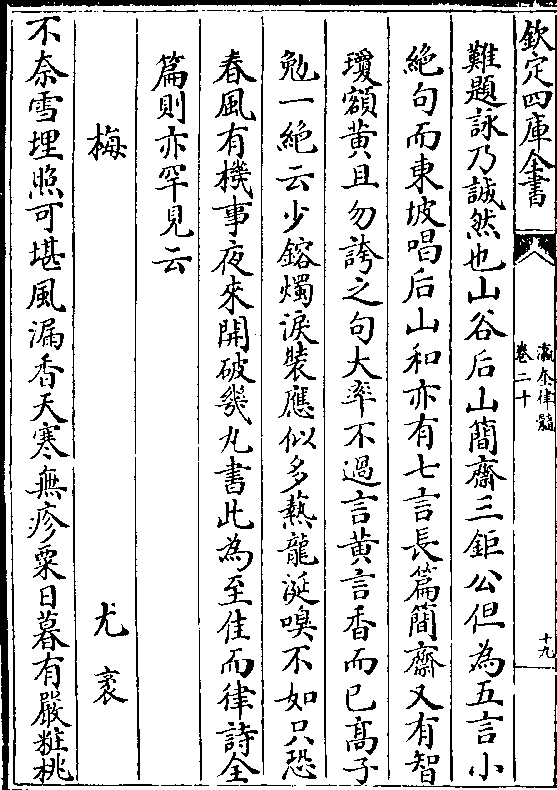 欽定四庫全書
瀛奎律髓
卷二十
十九
難題詠乃誠然也山谷后山簡齋三鉅公但為五言小
絶句而東坡唱后山和亦有七言長篇簡齋又有智
瓊額黄且勿誇之句大率不過言黄言香而已髙子
勉一絶云少鎔燭淚裝應似多爇龍涎嗅不如只恐
春風有機事夜來開破幾丸書此為至佳而律詩全
篇則亦罕見云
梅
尤袤
不奈雪埋照可堪風漏香天寒無疹粟日暮有嚴粧桃